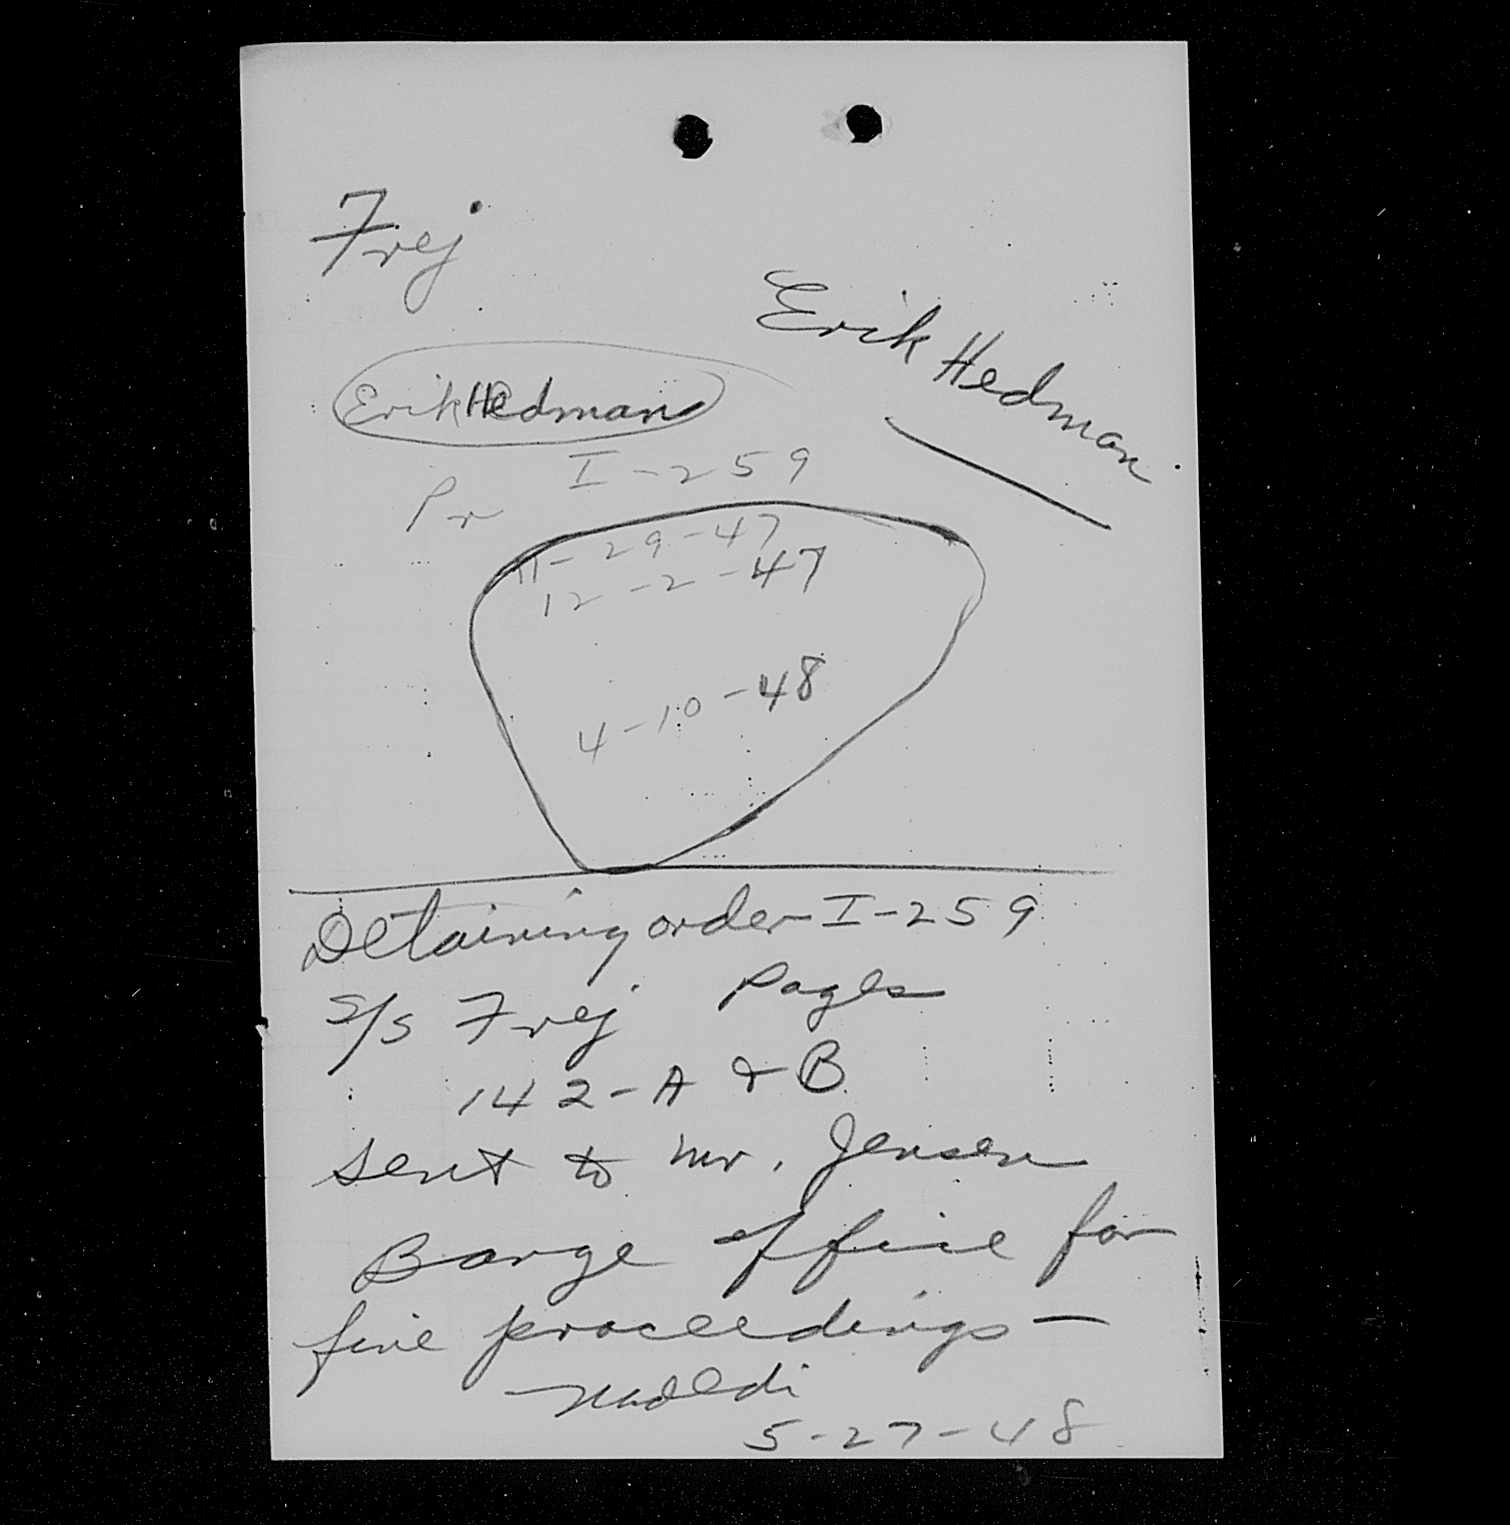 Frej
Erik Hedman
Erik Hedman
I-259
Pr
11-29-47
12-2-47
4-10-48
Detaining order I-259
S/S Frej Pages
142-A & B
sent to Mr. Jensen
Barge office for
fine proceedings —
5-27-48